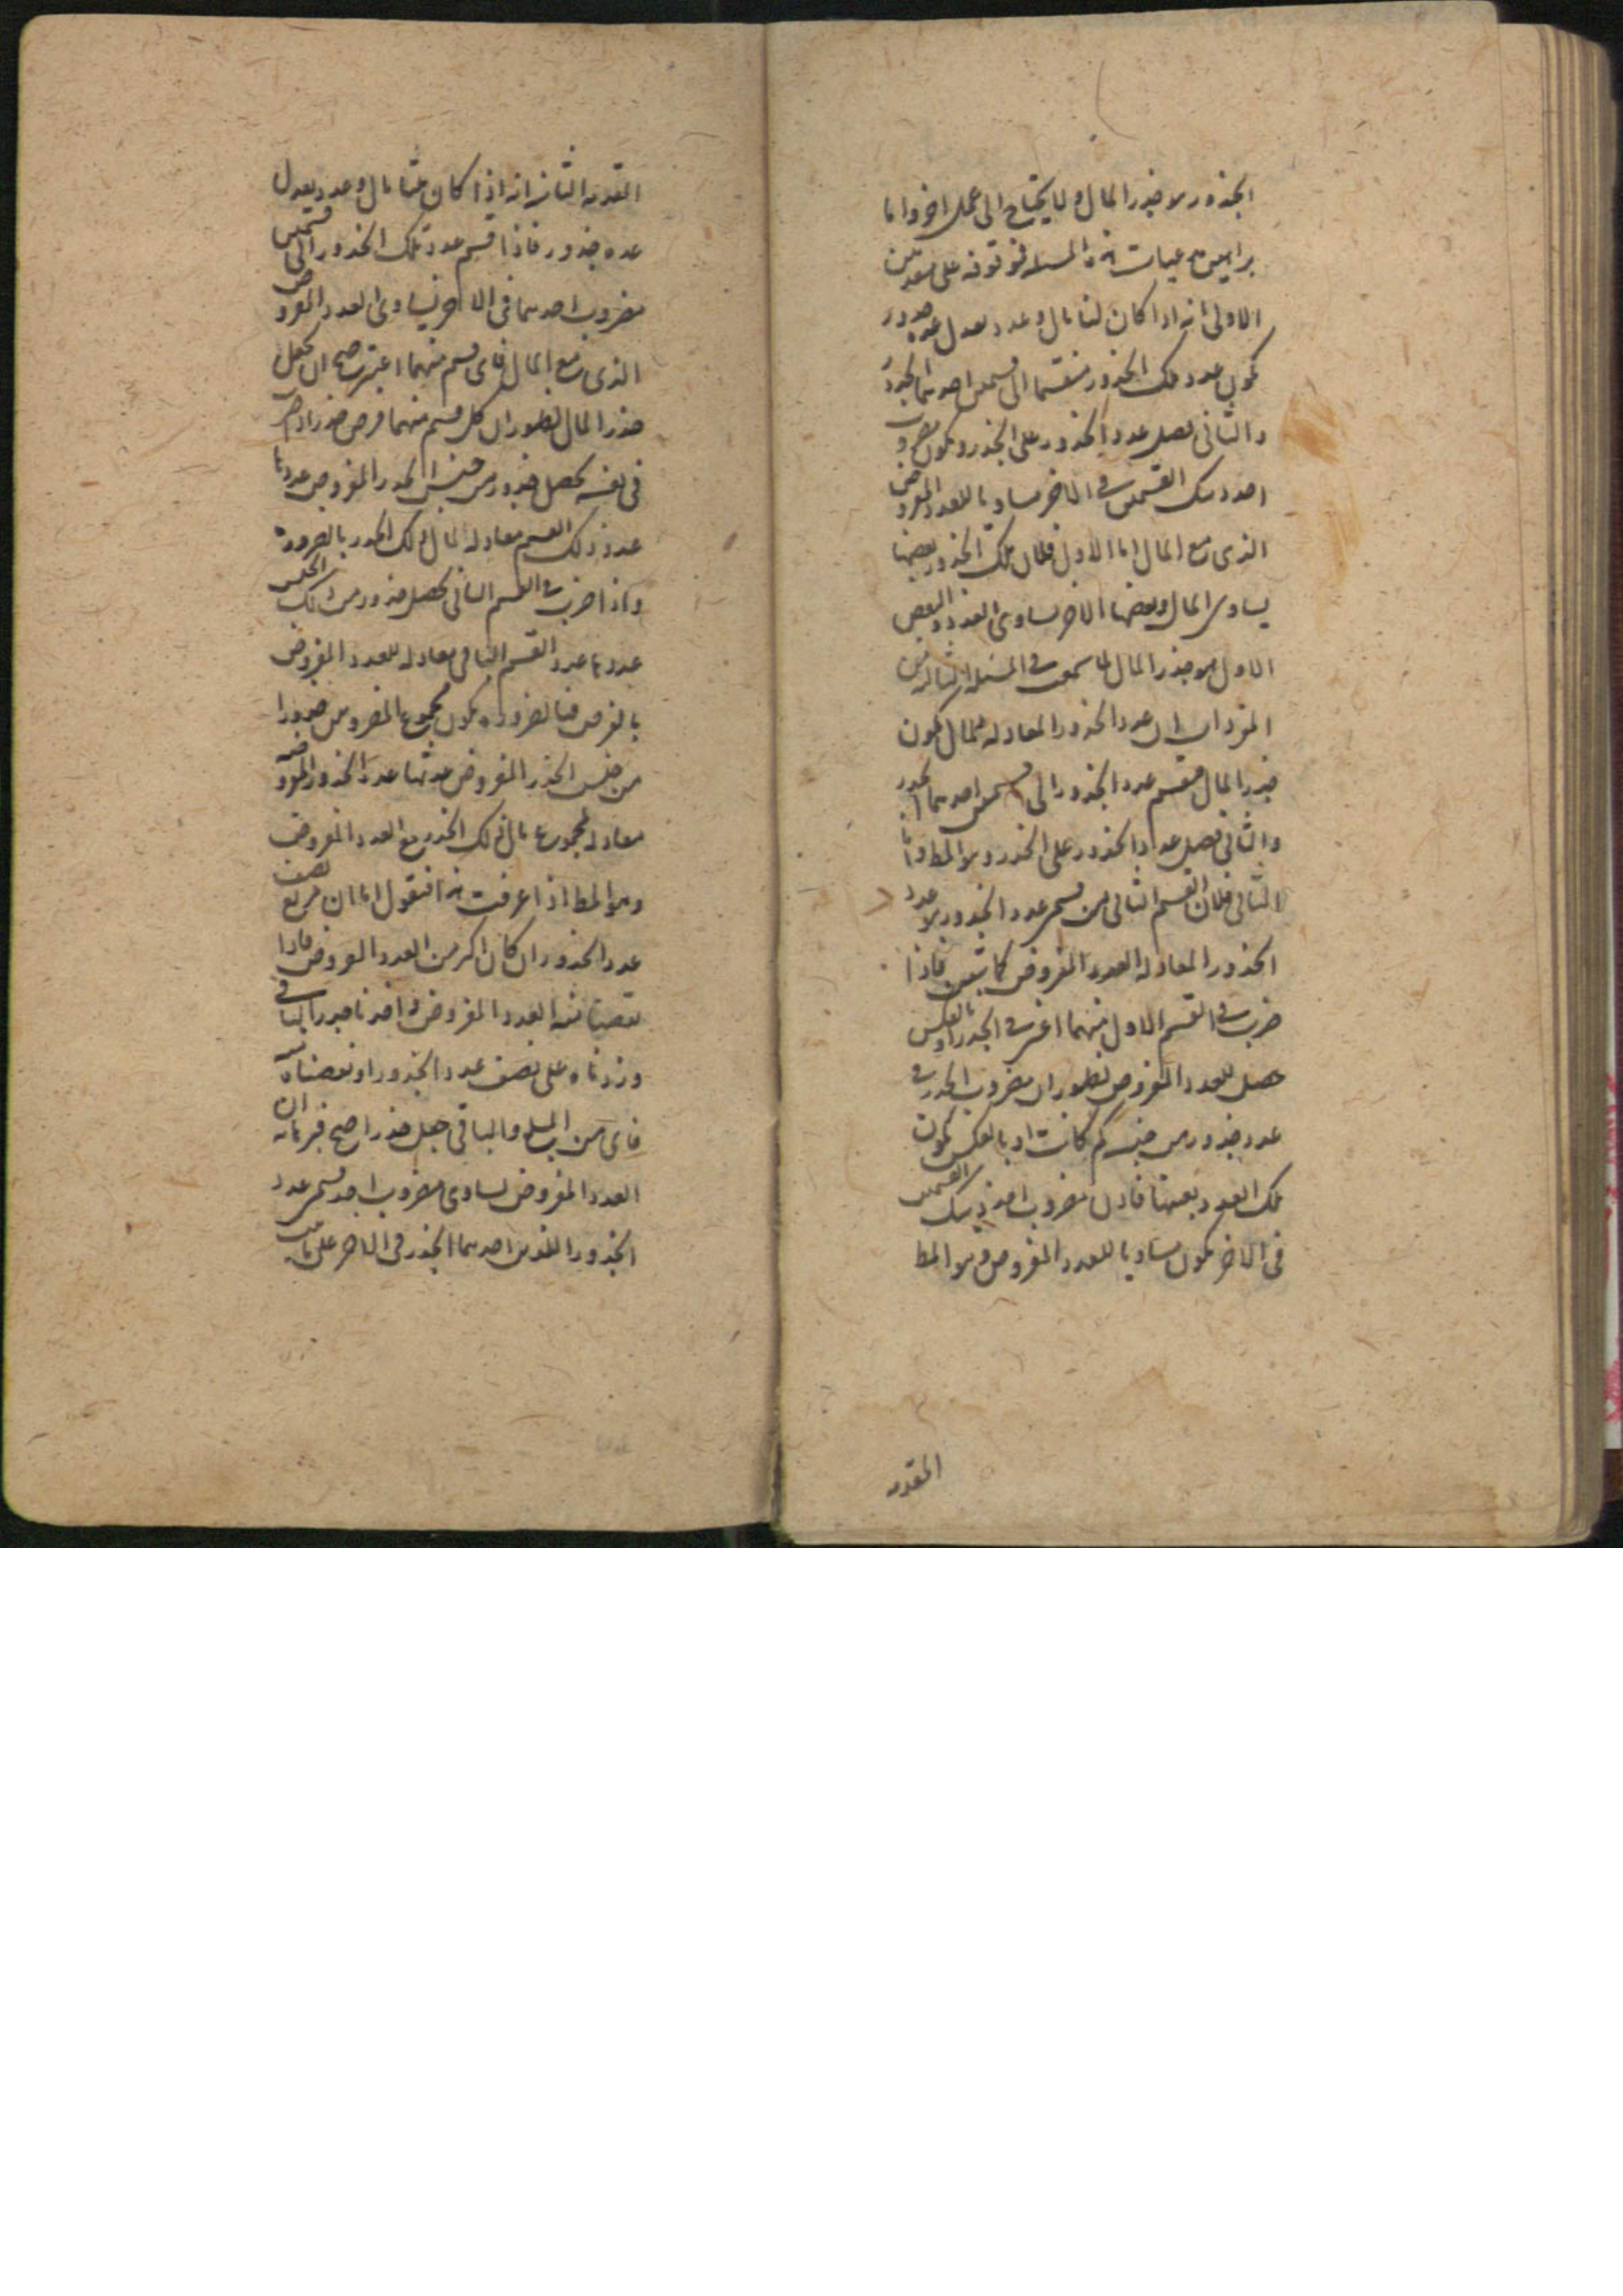 الجذور هو جذر المال ولا يحتاج الى عمل اخر واما
براهين عمليات هذه المسئله فموقوفه على مقدمتين
الاولى انه اذا كان لنا مال وعدد يعدل عده جذور
يكون عدد تلك الجذور منقسما الى قسمين احدهما الجذر
والثانى فضل عدد الجذور على الجذر ويكون مضروب
احد ذينك القسمين فى الاخر مساويا للعدد المفروض
الذى مع المال اما الاول فلان تلك الجذور بعضها
يساوى المال وبعضها الاخر يساوى العدد والبعض
الاول هو جذر المال لما سمعت فى المسئله الثالثه من
المفردات ان عدد الجذور المعادله للمال يكون
جذر المال فينقسم عدد الجذور الى قسمين احدهما الجذر
والثانى فضل عدد الجذور على الجذر وهو المط واما
الثانى فلان القسم الثانى من قسمى عدد الجذور هو عدد
الجذور المعادله العدد المفروض كما تبين فاذا
ضرب فى القسم الاول منهما اعنى فى الجذر او بالعكس
حصل العدد المفروض لظهور ان مضروب الجذر فى
عدد جذور من جنسه كم كانت او بالعكس يكون
تلك العدد بعينها فاذن مضروب احد ذينك القسمين
فى الاخر يكون مساويا للعدد المفروض وهو المط
المقدمه
المقدمه الثانيه انه اذا كان عندنا مال وعدد يعدل
عده جذور فاذا قسم عدد تلك الجذور الى قسمين
مضروب احدهما فى الاخر يساوى العدد المفروض
الذى مع المال فاى قسم منهما اعتبر صح ان يجعل
جذر المال لظهور ان كل قسم منهما فرض جذرا اذا ضرب
فى نفسه يحصل جذور من جنس الجذر المفروض عددها
عدد ذلك القسم معادله لمال ذلك الجذر بالضروره
واذا ضرب فى القسم الثانى يحصل جذور من ذلك الجنس
عددها عدد القسم الثانى معادله للعدد المفروض
بالفرض فبالضروره يكون مجموع المضروبين جذورا
من جنس الجذر المفروض عدتها عدد الجذور المفروضه
معادله لمجموع مال ذلك الجذر مع العدد المفروض
وهو المط اذا عرفت هذا فنقول اما ان مربع نصف
عدد الجذور ان كان اكثر من العدد المفروض فاذا
نقصنا منه العدد المفروض واخذنا جذر الباقى
وزدناه على نصف عدد الجذور او نقصناه منه
فاى من المبلغ والباقى جعل جذرا صح فبرهانه ان
العدد المفروض يساوى مضروب احد قسمى عدد
الجذور اللذين احدهما الجذر فى الاخر على ما بين